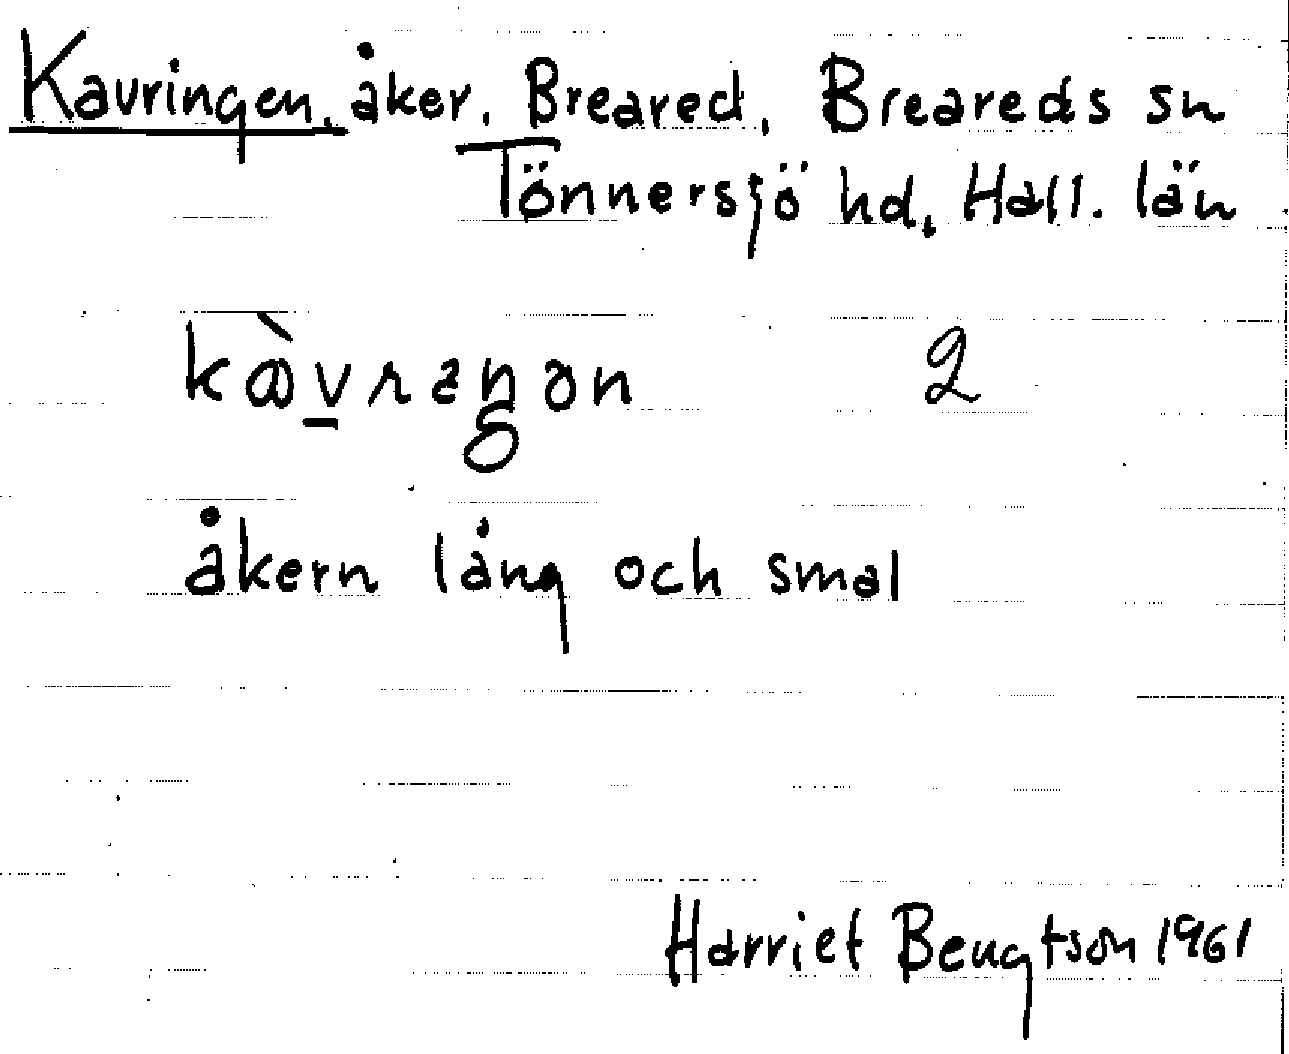 Kavringen, åker, Breared, Breareds sn
Tönnersjö hd, Hall. län
2
åkern lång och smal
Harriet Bengtson 1961